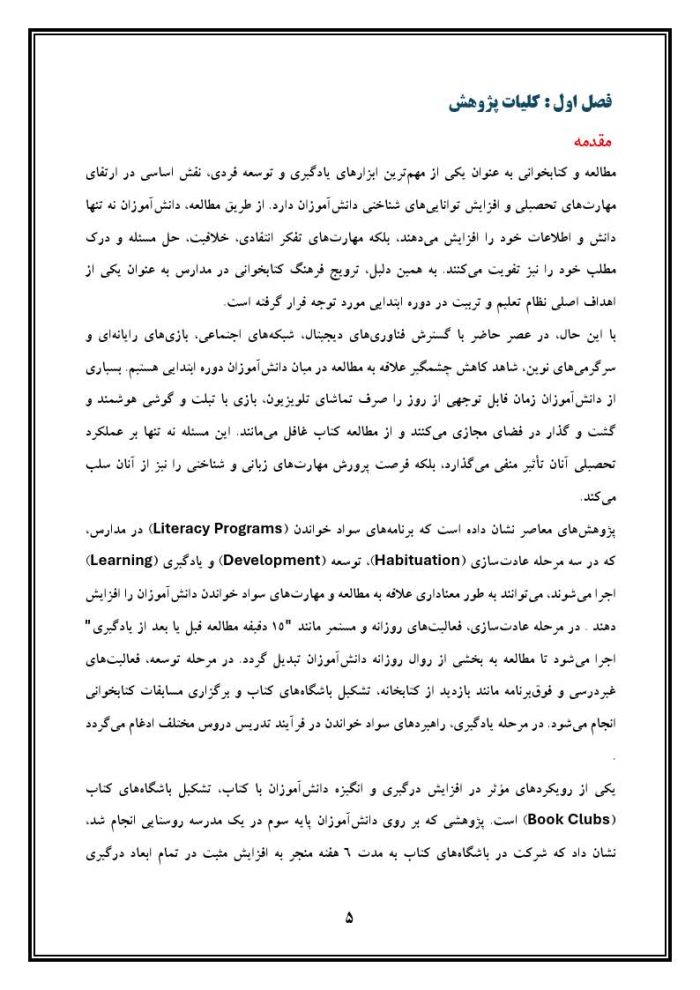 فصل اول : کلیات پژوهش
مقدمه
مطالعه و کتابخوانی به عنوان یکی از مهم‌ترین ابزارهای یادگیری و توسعه فردی، نقش اساسی در ارتقای
مهارت‌های تحصیلی و افزایش توانایی‌های شناختی دانش‌آموزان دارد. از طریق مطالعه، دانش‌آموزان نه تنها
دانش و اطلاعات خود را افزایش می‌دهند، بلکه مهارت‌های تفکر انتقادی، خلاقیت، حل مسئله و درک
مطلب خود را نیز تقویت می‌کنند. به همین دلیل، ترویج فرهنگ کتابخوانی در مدارس به عنوان یکی از
اهداف اصلی نظام تعلیم و تربیت در دوره ابتدایی مورد توجه قرار گرفته است.
با این حال، در عصر حاضر با گسترش فناوری‌های دیجیتال، شبکه‌های اجتماعی، بازی‌های رایانه‌ای و
سرگرمی‌های نوین، شاهد کاهش چشمگیر علاقه به مطالعه در میان دانش‌آموزان دوره ابتدایی هستیم. بسیاری
از دانش‌آموزان زمان قابل توجهی از روز را صرف تماشای تلویزیون، بازی با تبلت و گوشی هوشمند و
گشت و گذار در فضای مجازی می‌کنند و از مطالعه کتاب غافل می‌مانند. این مسئله نه تنها بر عملکرد
تحصیلی آنان تأثیر منفی می‌گذارد، بلکه فرصت پرورش مهارت‌های زبانی و شناختی را نیز از آنان سلب
می‌کند.
پژوهش‌های معاصر نشان داده است که برنامه‌های سواد خواندن (Literacy Programs) در مدارس،
که در سه مرحله عادت‌سازی (Habituation)، توسعه (Development) و یادگیری (Learning)
اجرا می‌شوند، می‌توانند به طور معناداری علاقه به مطالعه و مهارت‌های سواد خواندن دانش‌آموزان را افزایش
دهند . در مرحله عادت‌سازی، فعالیت‌های روزانه و مستمر مانند "۱۵ دقیقه مطالعه قبل یا بعد از یادگیری"
اجرا می‌شود تا مطالعه به بخشی از روال روزانه دانش‌آموزان تبدیل گردد. در مرحله توسعه، فعالیت‌های
غیردرسی و فوق‌برنامه مانند بازدید از کتابخانه، تشکیل باشگاه‌های کتاب و برگزاری مسابقات کتابخوانی
انجام می‌شود. در مرحله یادگیری، راهبردهای سواد خواندن در فرآیند تدریس دروس مختلف ادغام می‌گردد
.
یکی از رویکردهای مؤثر در افزایش درگیری و انگیزه دانش‌آموزان با کتاب، تشکیل باشگاه‌های کتاب
(Book Clubs) است. پژوهشی که بر روی دانش‌آموزان پایه سوم در یک مدرسه روستایی انجام شد،
نشان داد که شرکت در باشگاه‌های کتاب به مدت ۶ هفته منجر به افزایش مثبت در تمام ابعاد درگیری
۵